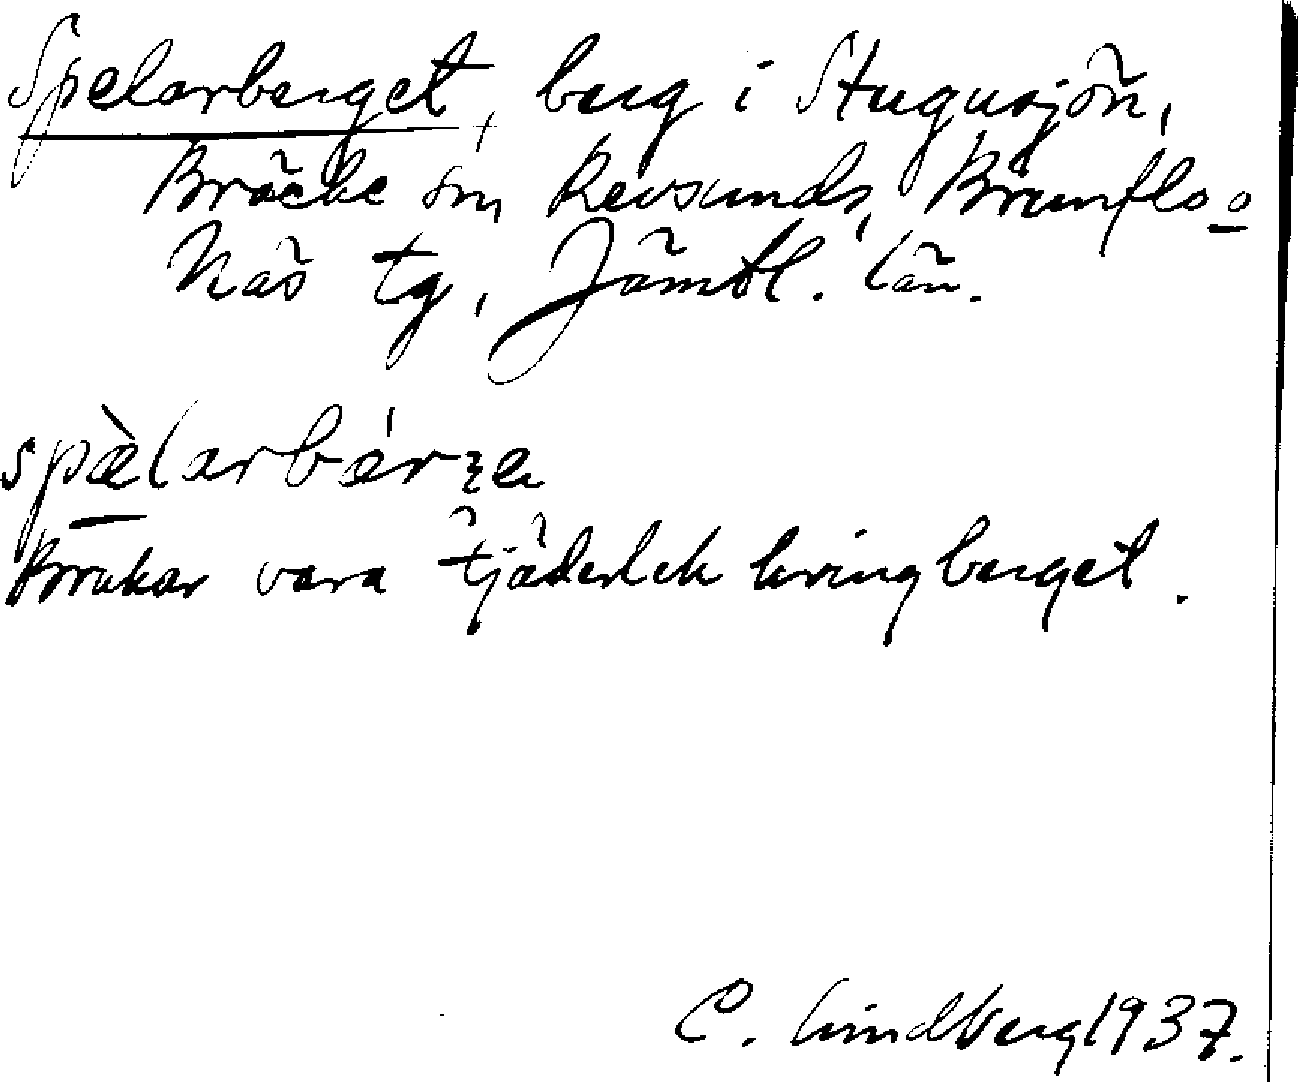 Spelarberget, berg i Stugusjön,
Bräcke sn, Revsunds, Brunflo o
Näs tg, Jämtl. län.
spæ̀larbǽrʒe
Brukar vara tjäderlek kring berget.
C. Lindberg 1937.